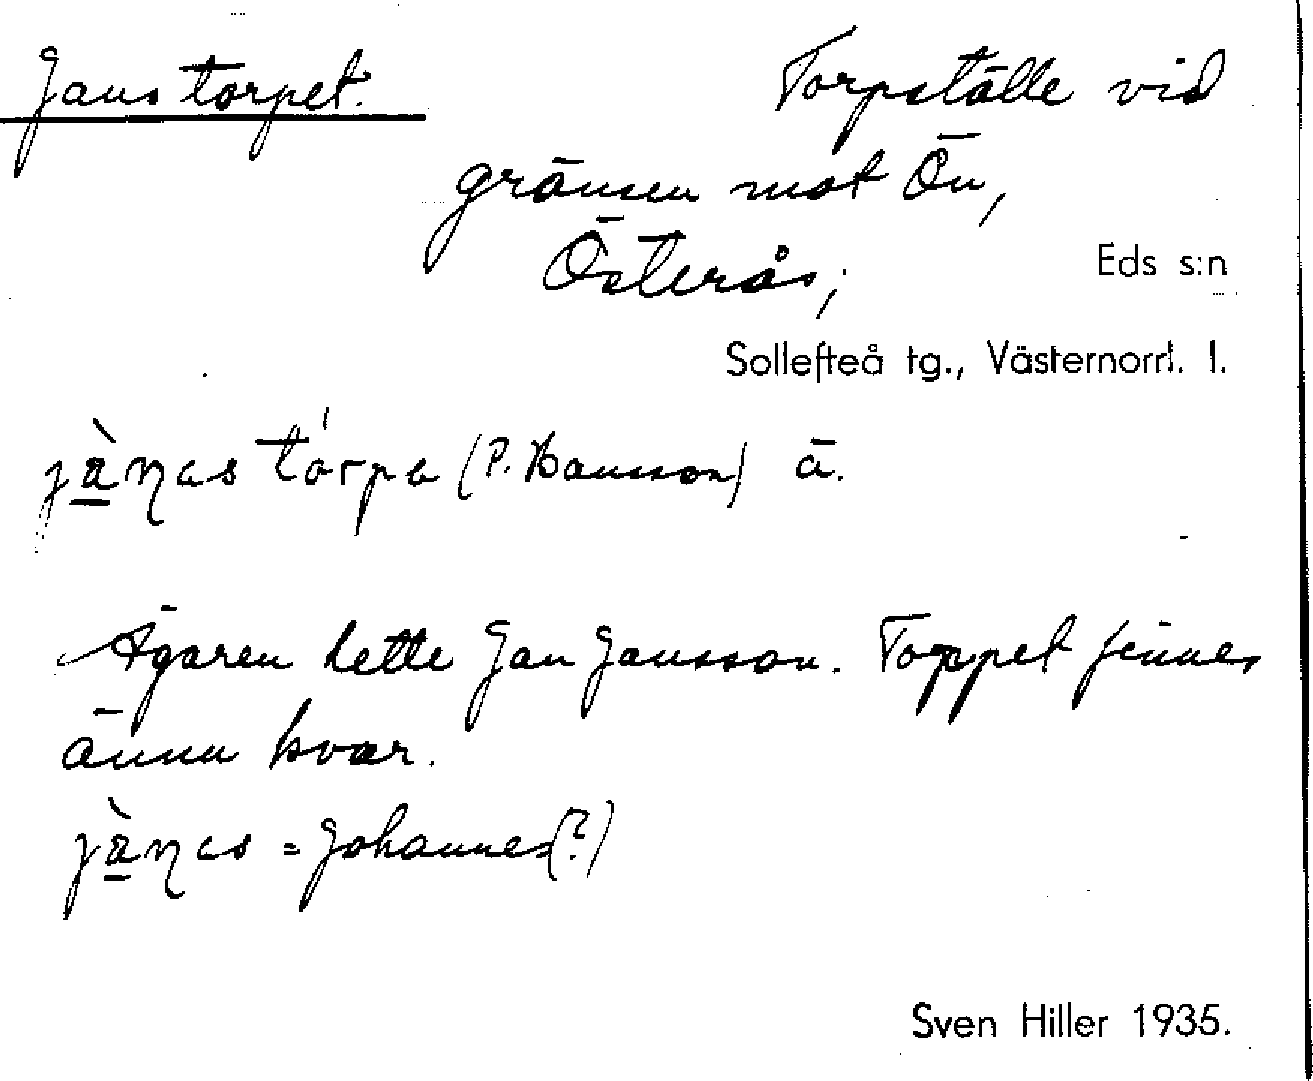 Janstorpet. Torpställe vid
gränsen mot Ön,
Österås, Eds s:n
Sollefteå tg., Västernorrl. l.
jànas tórpa (P. Hansson) ä.
Ägaren hette Jan Jansson. Torppet finnes
ännu kvar.
jànas = Johannes(?)
Sven Hiller 1935.